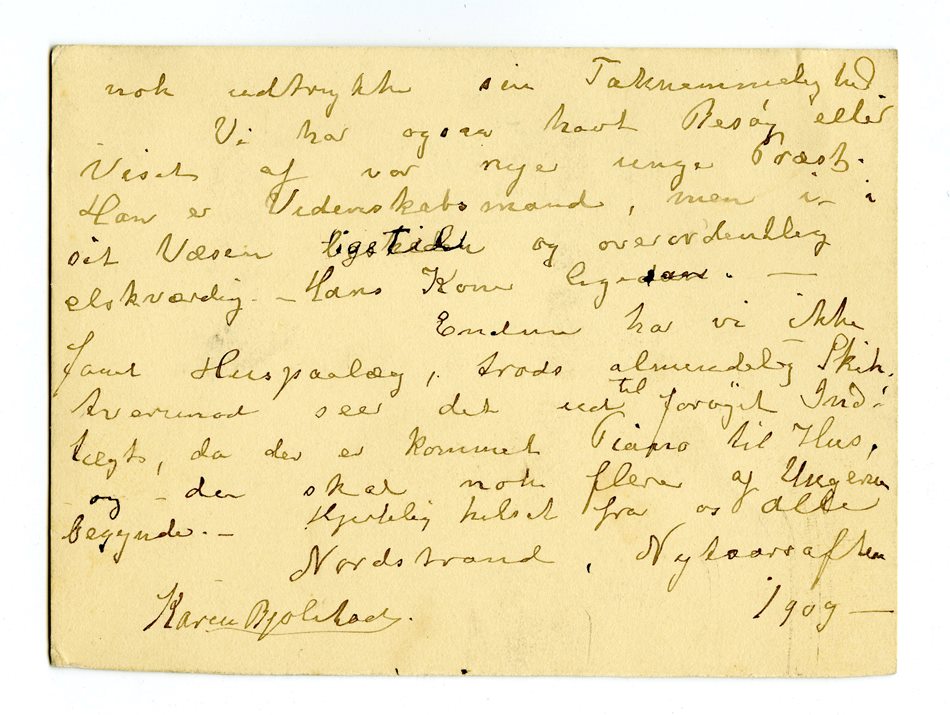 nok udtrykke sin Taknemmelighed
Vi har ogsaa havt Besøg eller
Visit af vor nye unge Præst.
Han er Videnskabsmand, men i
sit Væsen og overordentlig
elskværdig. - Hans Kone ligesaa. -
Endnu har vi ikke
faaet Huspaalæg, trods almindelig Skik.
tvermod seer det ud til forøget Ind-
tægt, da der er kommet Piano til Hus,
- og - der skal nok flere af Ungerne
begynde. - Hjertelig hilset fra os alle
Nordstrand, Nytaarsaften
1909 -
Karen Bjølstad.